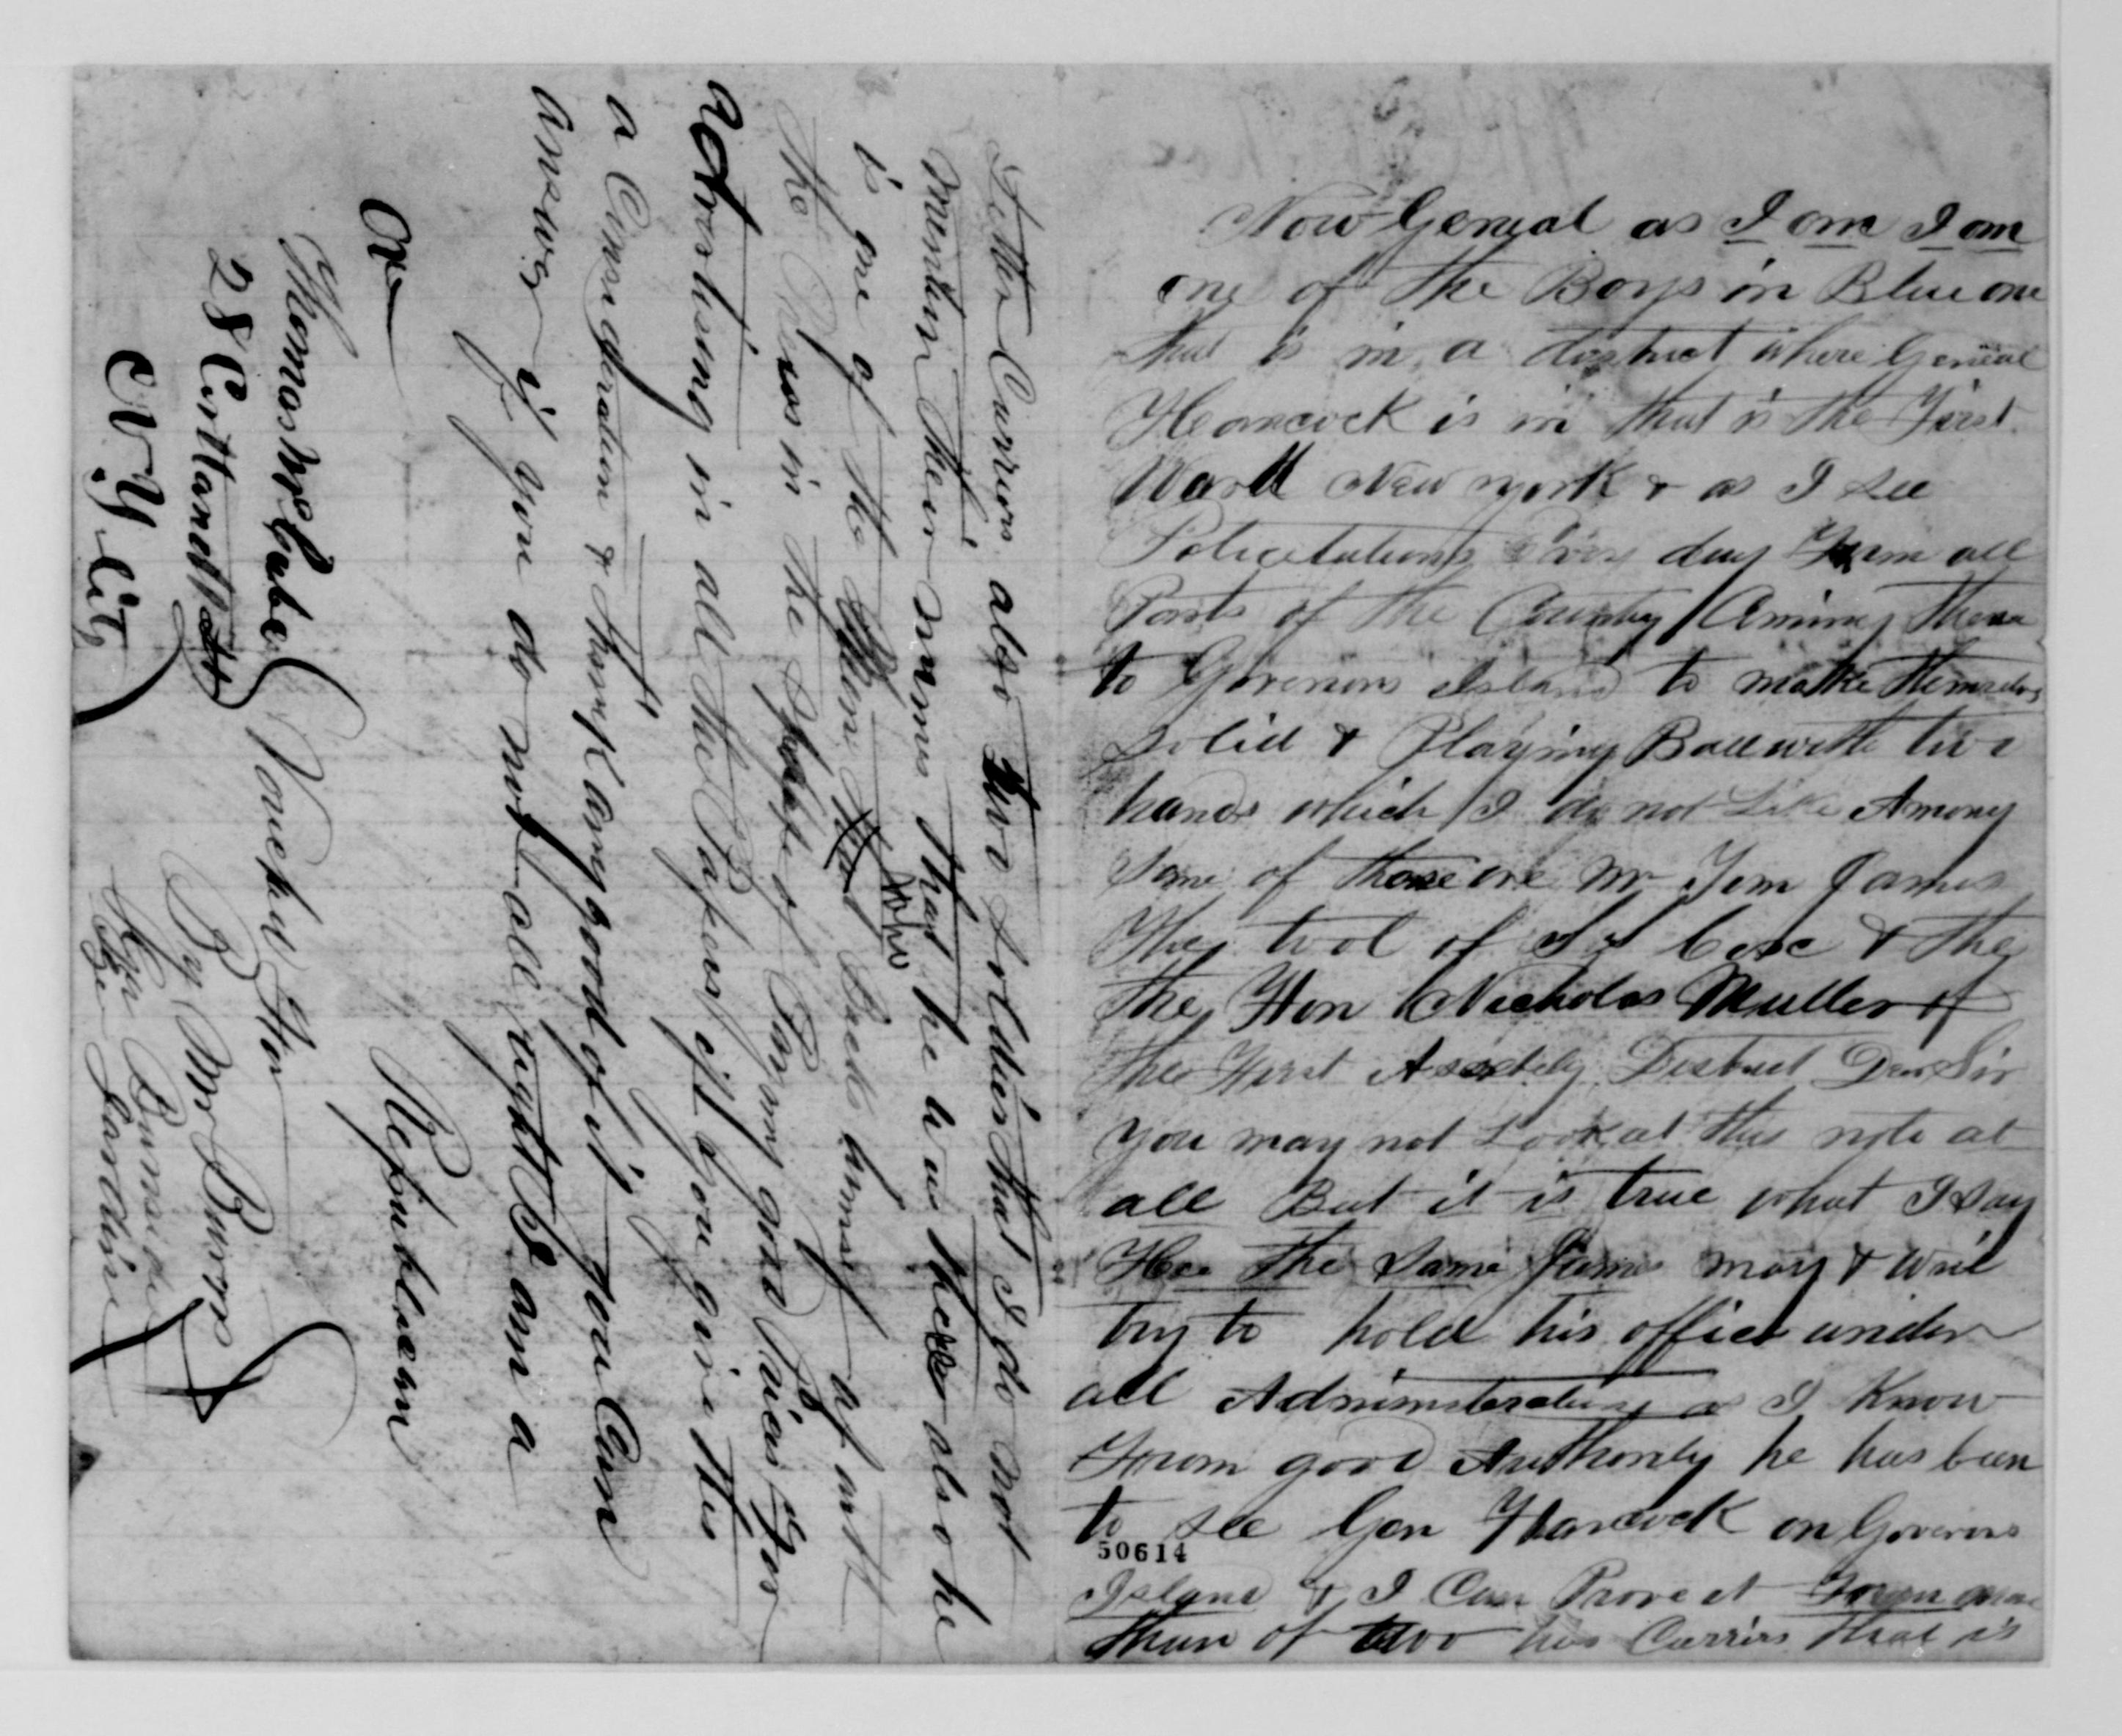 Now Genral as I am I am
one of the Boys in Blue one
that is in a district where Genral
Heancock is in that is the First
Ward New York & as I see
Policitations Every day From all
Parts of the County Coming There
to Govenors Island to make themselves
solid & Playing Ball with two
hands which I do not Like Among
some of those one Mr Tom James
They tool of & the
the Hon Nicholas Muller of
the First Assebely District Dear Sir
you may not Look at this note at
all But it is true what I say
Here the Same James may & will
try to hold his office under
all Administerations as I Know
From good Authority he has been
to see Gen Hancock on Govenors
50614
Island & I Can Prove it From more
than of two his Carriers that is
Letter Carriers also two soldiers that I do not
mention their names that he has there also he
is one of the Men who Said himself
the Press in the State of good as for
Advertising in all the Papers if you give this
a Consideration & think any good of it you Can
answer if you do not all right as am a
Republican
or
Thomas McCabe
28 Cortlandt St
N.Y City
Vouched For
By Mr Burns